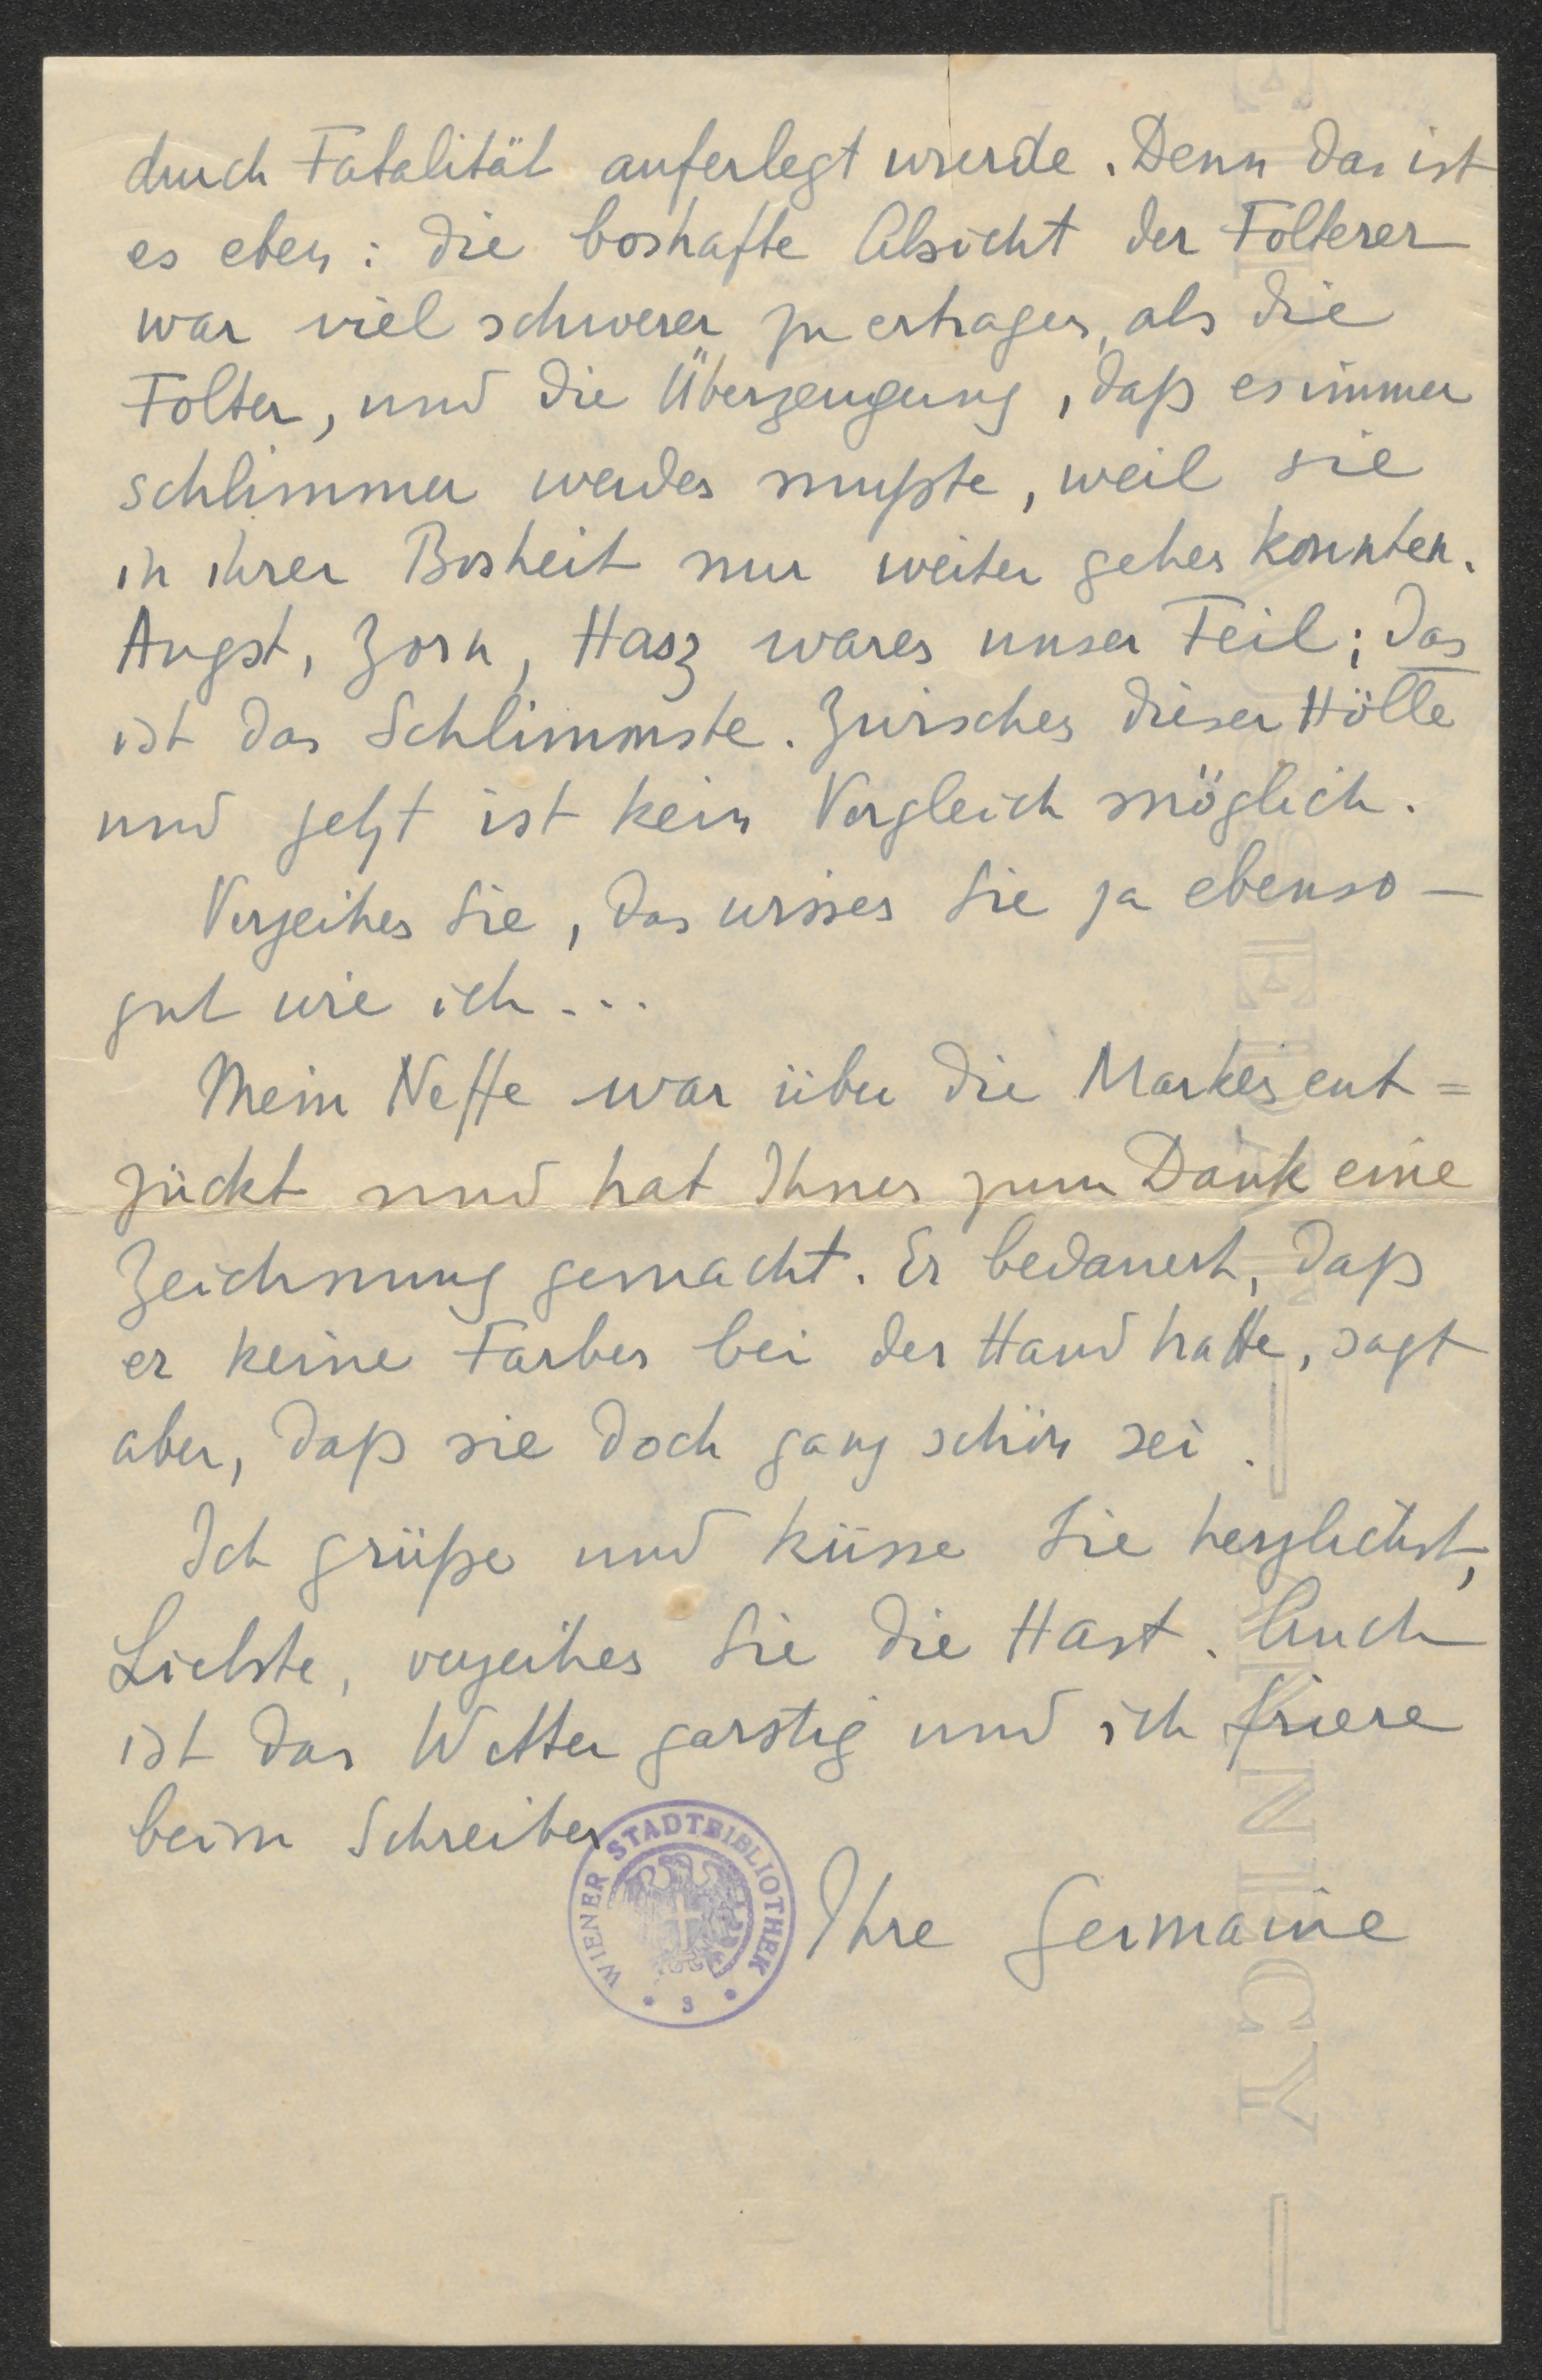 durch Fatalität auferlegt wurde. Denn das ist
es eben: die boshafte Absicht der Folterer
war viel schwerer zu ertragen, als die
Folter, und die Überzeugung, daß es immer
schlimmer werden mußte, weil sie
in ihrer Bosheit nur weiter gehen konnten.
Angst, Zorn, Hasz waren unser Teil; das
ist das Schlimmste. Zwischen dieser Hölle
und jetzt ist kein Vergleich möglich.
Verzeihen Sie, das wissen Sie ja ebenso-
gut wie ich...
Mein Neffe war über die Marken ent=
zückt und hat Ihnen zum Dank eine
Zeichnung gemacht. Er bedauert, daß
er keine Farben bei der Hand hatte, sagt
aber, daß sie doch ganz schön sei.
Ich grüße und küsse Sie herzlichst,
Liebste, verzeihen Sie die Hast. Auch
ist das Wetter garstig und ich friere
beim Schreiben
WIENER STADTBIBLIOTHEK
* 3 *
Ihre Germaine